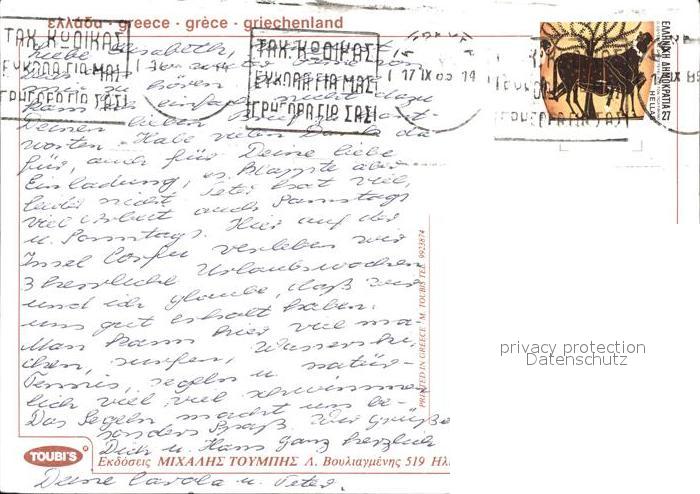 ελλάδα · greece · grèce · griechenland
ΤΑΧ. ΚΩΔΙΚΑΣ
ΕΥΚΟΛΑ ΓΙΑ ΜΑΣ
ΓΡΗΓΟΡΑ ΓΙΑ ΣΑΣ!
ΤΑΧ. ΚΩΔΙΚΑΣ
ΕΥΚΟΛΑ ΓΙΑ ΜΑΣ
ΓΡΗΓΟΡΑ ΓΙΑ ΣΑΣ!
17 IX 14
ΕΛΛΗΝΙΚΗ ΔΗΜΟΚΡΑΤΙΑ 27
HELLAS
Liebe Elisabeth,
zu hören
einfach nicht dazu
Deinen lieben Brief
worten. Habe vielen Dank da
für, auch für Deine liebe
Einladung, es klappte aber
leider nicht. Peter hat viel,
viel Arbeit auch Samstags
u. Sonntags. Hier auf der
Insel Corfu verleben wir
3 herrliche Urlaubswochen
und ich glaube, daß wir
uns gut erholt haben.
Man kann hier viel ma-
chen, surfen, Wasserski,
Tennis, segeln u. natür-
lich viel, viel schwimmen
Das Segeln macht uns be-
sonders Spaß. Wir grüße
Dich u. Hans ganz herzlich
Deine Carola u. Peter.
PRINTED IN GREECE / M. TOUBIS TEL. 9923874
privacy protection
Datenschutz
TOUBI'S
Εκδόσεις ΜΙΧΑΛΗΣ ΤΟΥΜΠΗΣ Λ. Βουλιαγμένης 519 Ηλι